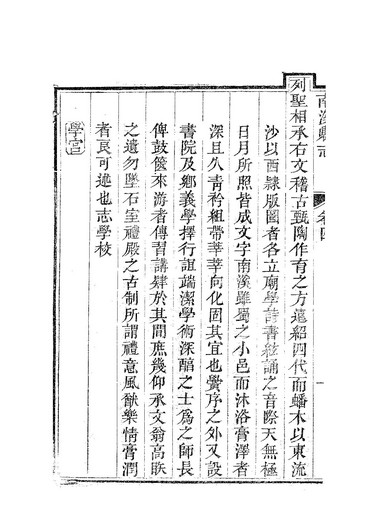 南溪縣志 卷四 一
列聖相承右文稽古甄陶作育之方遠紹四代而蟠木以東流
沙以西隸版圖者各立廟學詩書絃誦之音際天無極
日月所照皆成文字南溪雖蜀之小邑而沐浴膏澤者
深且久青衿組帶莘莘向化固其宜也黌序之外又設
書院及鄉義學擇行誼端潔學術深醇之士為之師長
俾鼓篋來游者傳習講肄於其間庶幾仰承文翁高眹
之遺勿墜石室禮殿之古制所謂禮意風猷樂情膏潤
者良可述也志學校
學宮